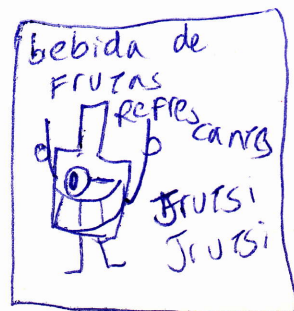 bebida de
FRUTAS
REFRES
CANTE
FRUTSI
FRUTSI